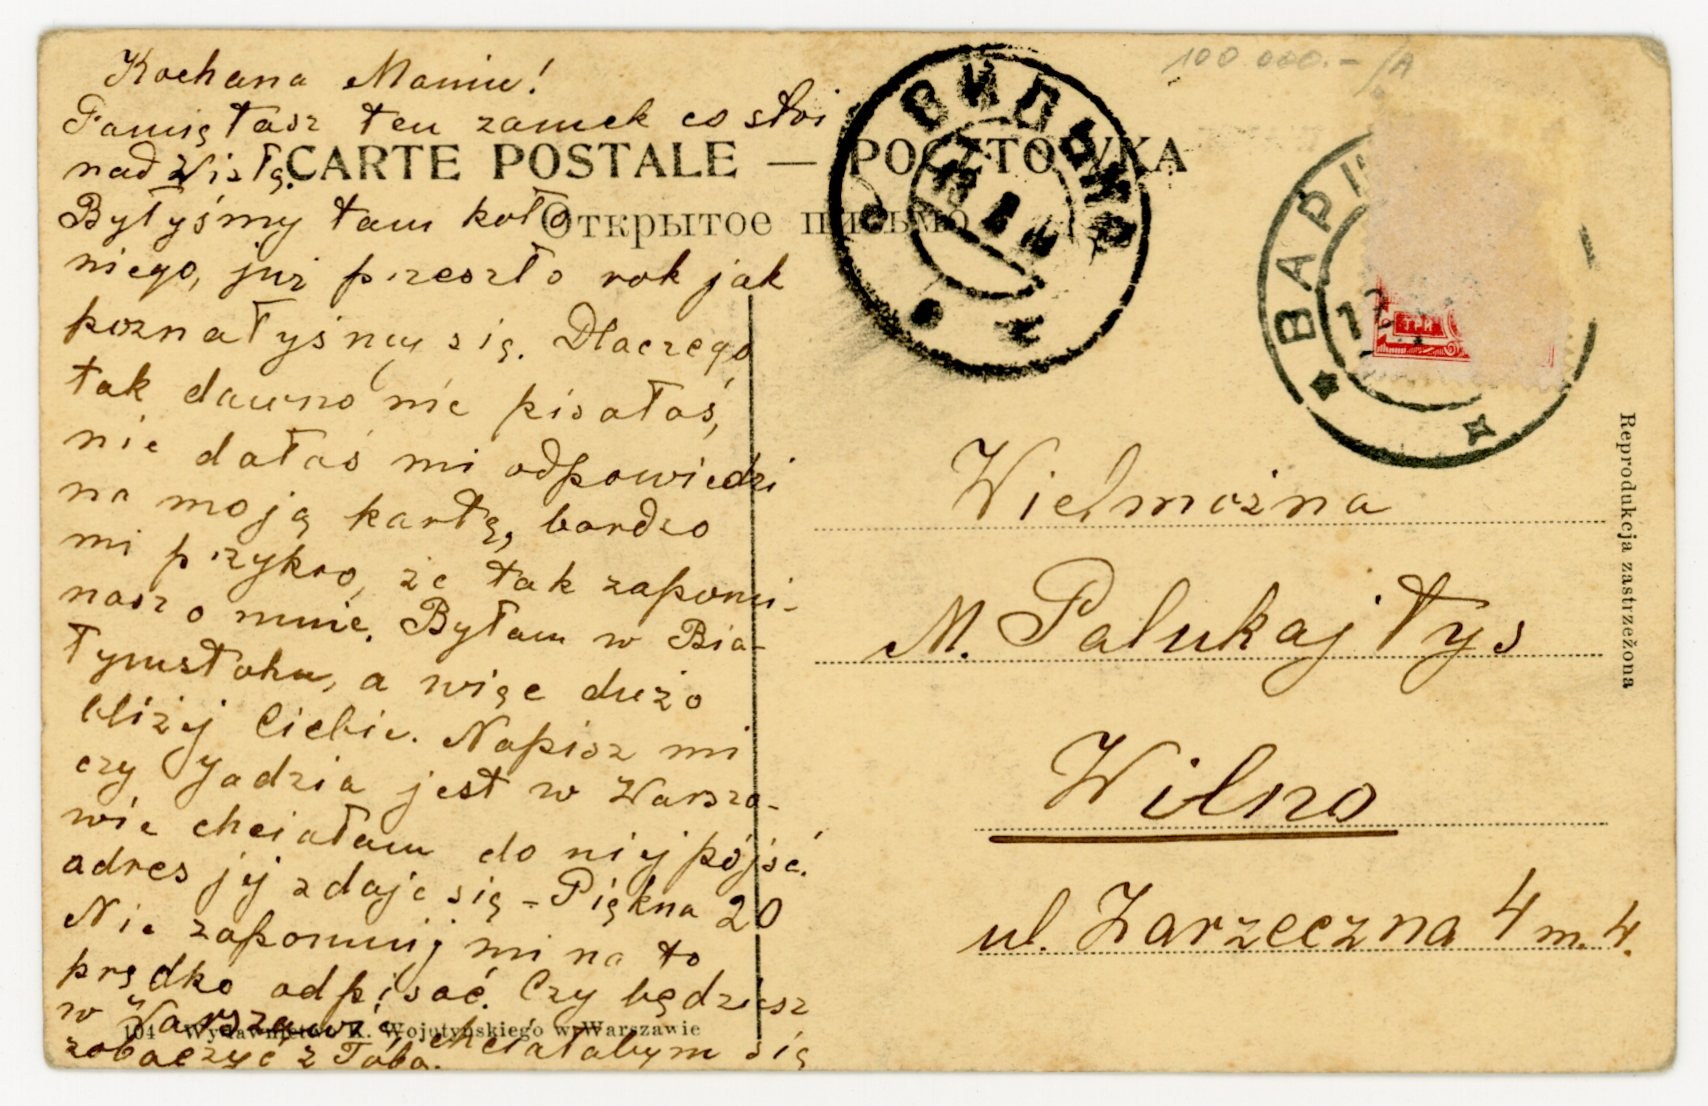 Kochana Maniu!
Pamiętasz ten zamek co stoi
nad Wisłą.
Byłyśmy tam koło
niego, już przeszło rok jak
poznałyśmy się. Dlaczego
tak dawno nie pisałaś,
nie dałaś mi odpowiedzi
na moją kartę, bardzo
mi przykro, że tak zapomi-
nasz o mnie. Byłam w Bia-
łymstoku, a więc dużo
bliżej Ciebie. Napisz mi
czy Jadzia jest w Warsza-
wie chciałam do niej pójść.
adres jej zdaje się - Piękna 20
Nie zapomnij mi na to
prędko odpisać. Czy będziesz
w Warszawie, chciałabym się
zobaczyć z Tobą.
CARTE POSTALE — POCZTOWKA
Открытое письмо
104 Wydawnictwo K. Wojutyńskiego w Warszawie
100 000.- /A
ВИЛЬНА
ВАРШ
12
ТРИ
Wielmożna
M. Palukajtys
Wilno
ul. Zarzeczna 4 m. 4.
Reprodukcja zastrzeżona